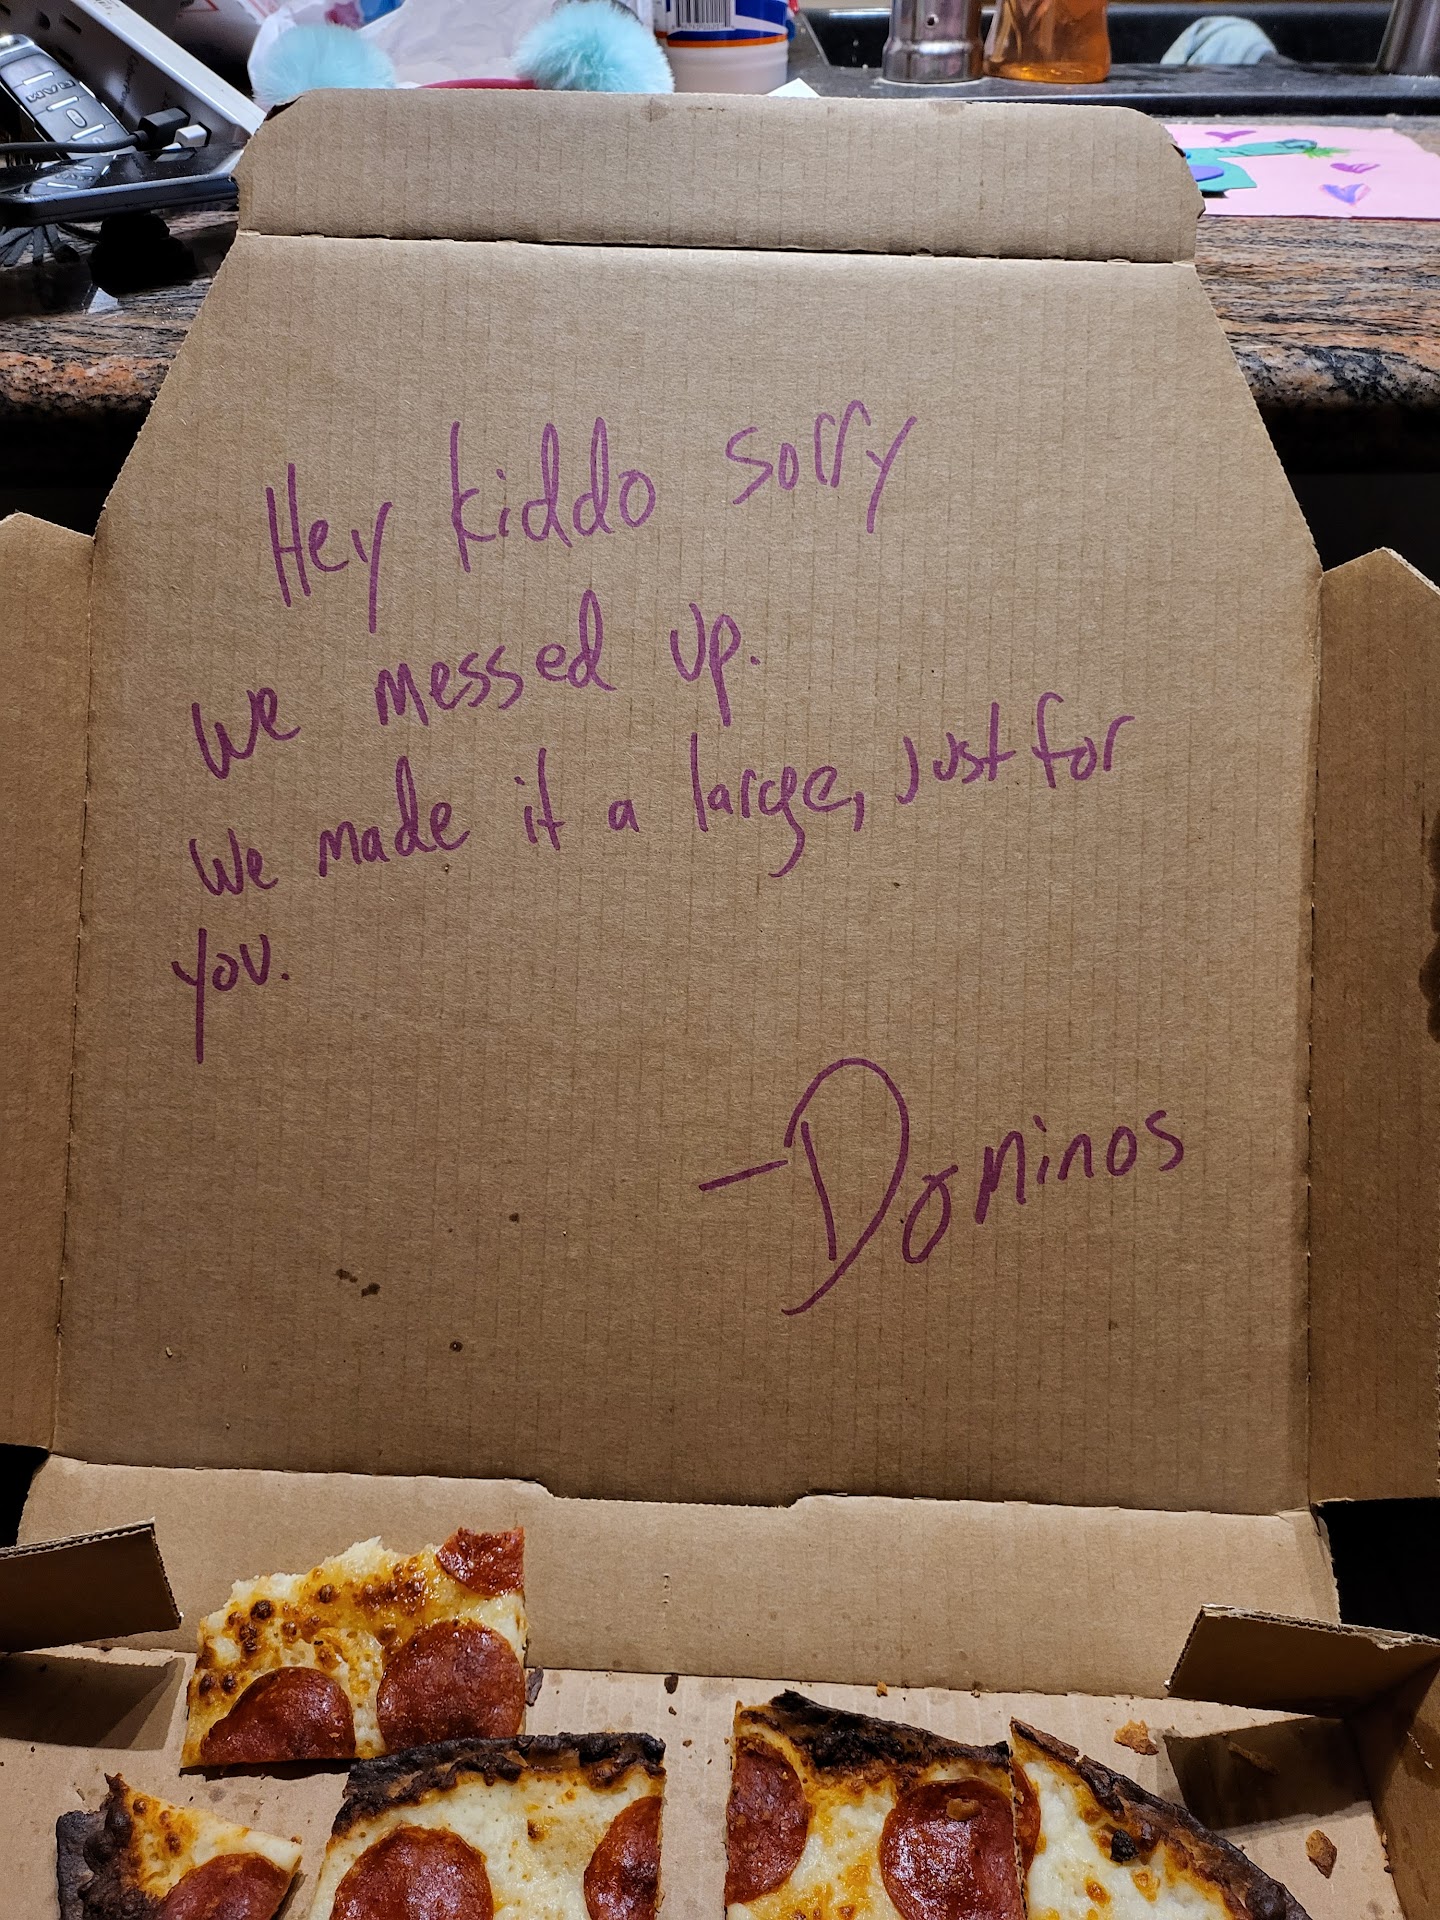 Hey kiddo sorry
we messed up.
We made it a large, just for
you.
-Dominos